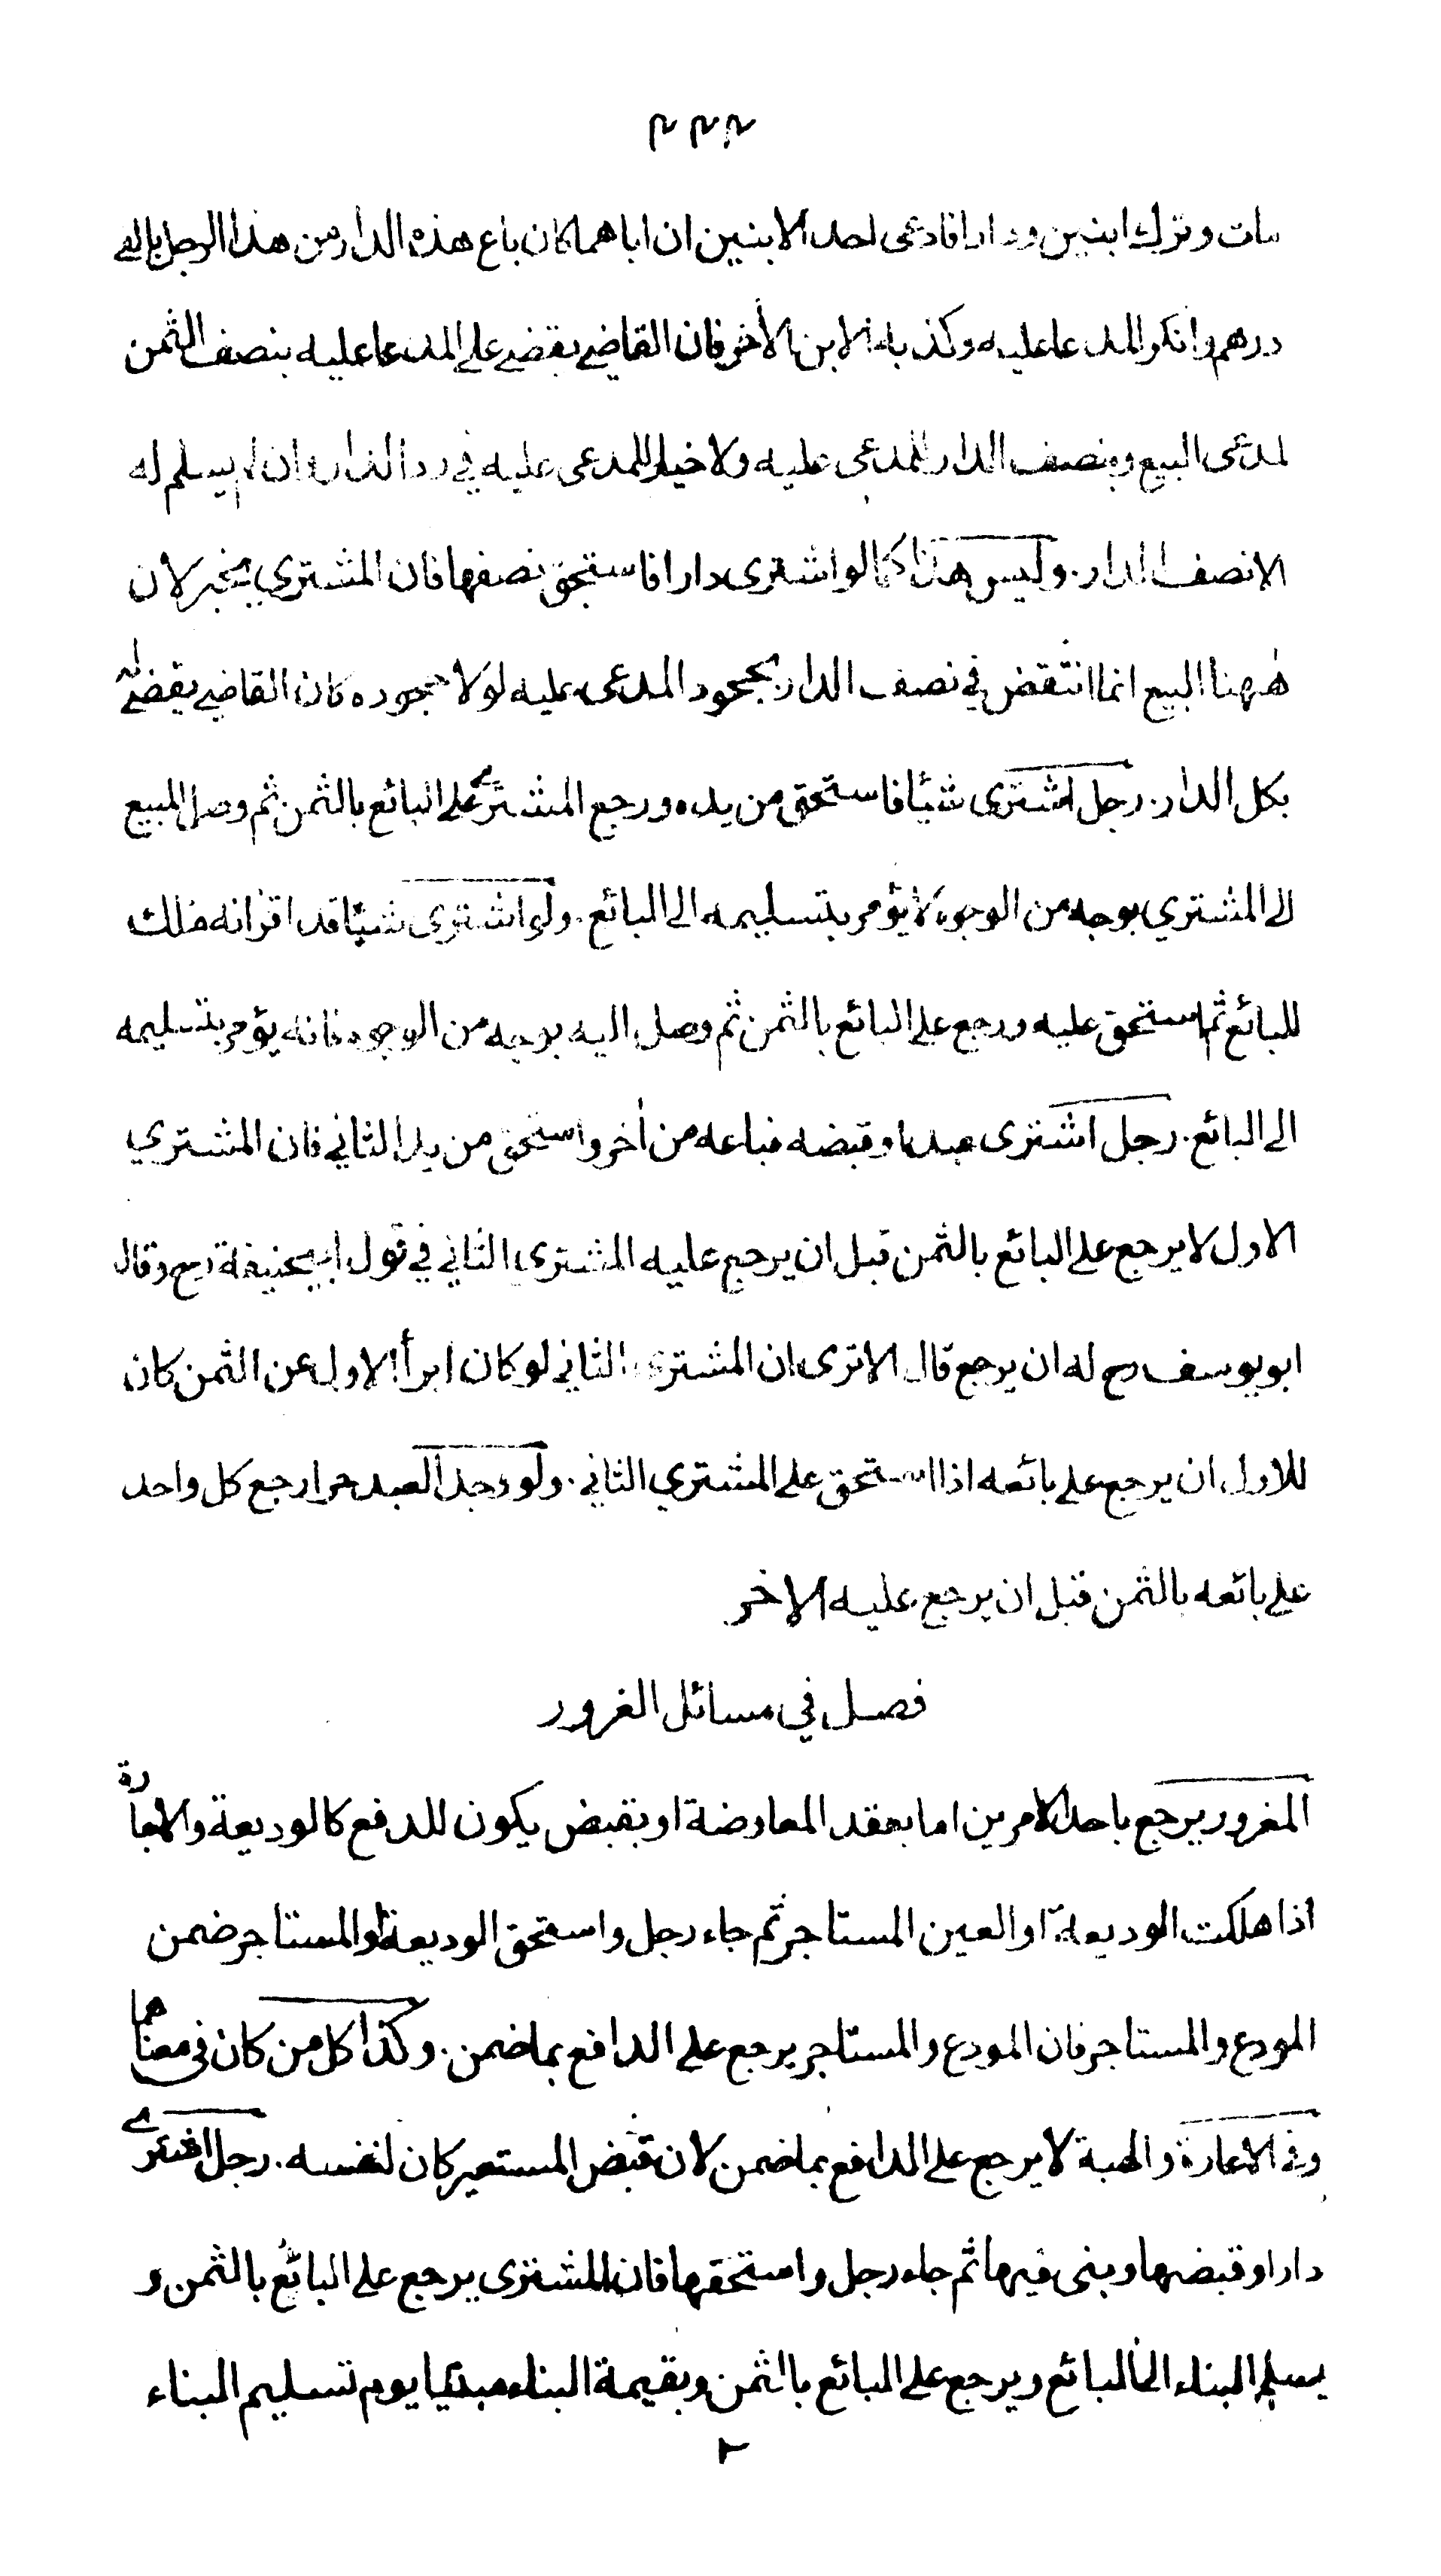 ٢٢٢
مات وترك ابنين ودارا فادعى احد الابنين ان اباهما كان باع هذه الدار من هذا الرجل بالف
درهم وانكر المدعا عليه وكذبه الابن الأخر فان القاضي يقضي على المدعا عليه بنصف الثمن
لمدعى البيع وبنصف الدار للمدعى عليه ولا خيار للمدعى عليه في رد الدار وان لم يسلم له
الا نصف الدار. وليس هذا كما لو اشترى دارا فاستحق نصفها فان المشتري يخير لان
هٰهنا البيع انما انتقض في نصف الدار بجحود المدعى عليه لولا جحوده كان القاضي يقضي له
بكل الدار. رجل اشترى شيئا فاستحق من يده ورجع المشتري على البائع بالثمن ثم وصل المبيع
الى المشتري بوجه من الوجوه لا يؤمر بتسليمه الى البائع. ولو اشترى شيئا قد اقر انه ملك
للبائع ثم استحق عليه ورجع على البائع بالثمن ثم وصل اليه بوجه من الوجوه فانه يؤمر بتسليمه
الى البائع. رجل اشترى عبدا وقبضه فباعه من أخر واستحق من يد الثاني فان المشتري
الاول لا يرجع على البائع بالثمن قبل ان يرجع عليه المشتري الثاني في قول ابيحنيفة رح وقال
ابو يوسف رح له ان يرجع قال الا ترى ان المشتري الثاني لو كان ابرأ الاول عن الثمن كان
للاول ان يرجع على بائعه اذا استحق على المشتري الثاني. ولو وجد العبد حرا رجع كل واحد
على بائعه بالثمن قبل ان يرجع عليه الاخر
فصل في مسائل الغرور
المغرور يرجع باحد الامرين اما بعقد المعاوضة او بقبض يكون للدفع كالوديعة والاجارة
اذا هلكت الوديعة او العين المستاجر ثم جاء رجل واستحق الوديعة او المستاجر ضمن
المودع والمستاجر فان المودع والمستاجر يرجع على الدافع بما ضمن. وكذا كل من كان في معناهما
وفي الاعارة والهبة لا يرجع على الدافع بما ضمن لان قبض المستعير كان لنفسه. رجل اشترى
دارا وقبضها وبنى فيها ثم جاء رجل واستحقها فان المشترى يرجع على البائع بالثمن و
يسلم البناء الى البائع ويرجع على البائع بالثمن وبقيمة البناء مبنيا يوم تسليم البناء
٢